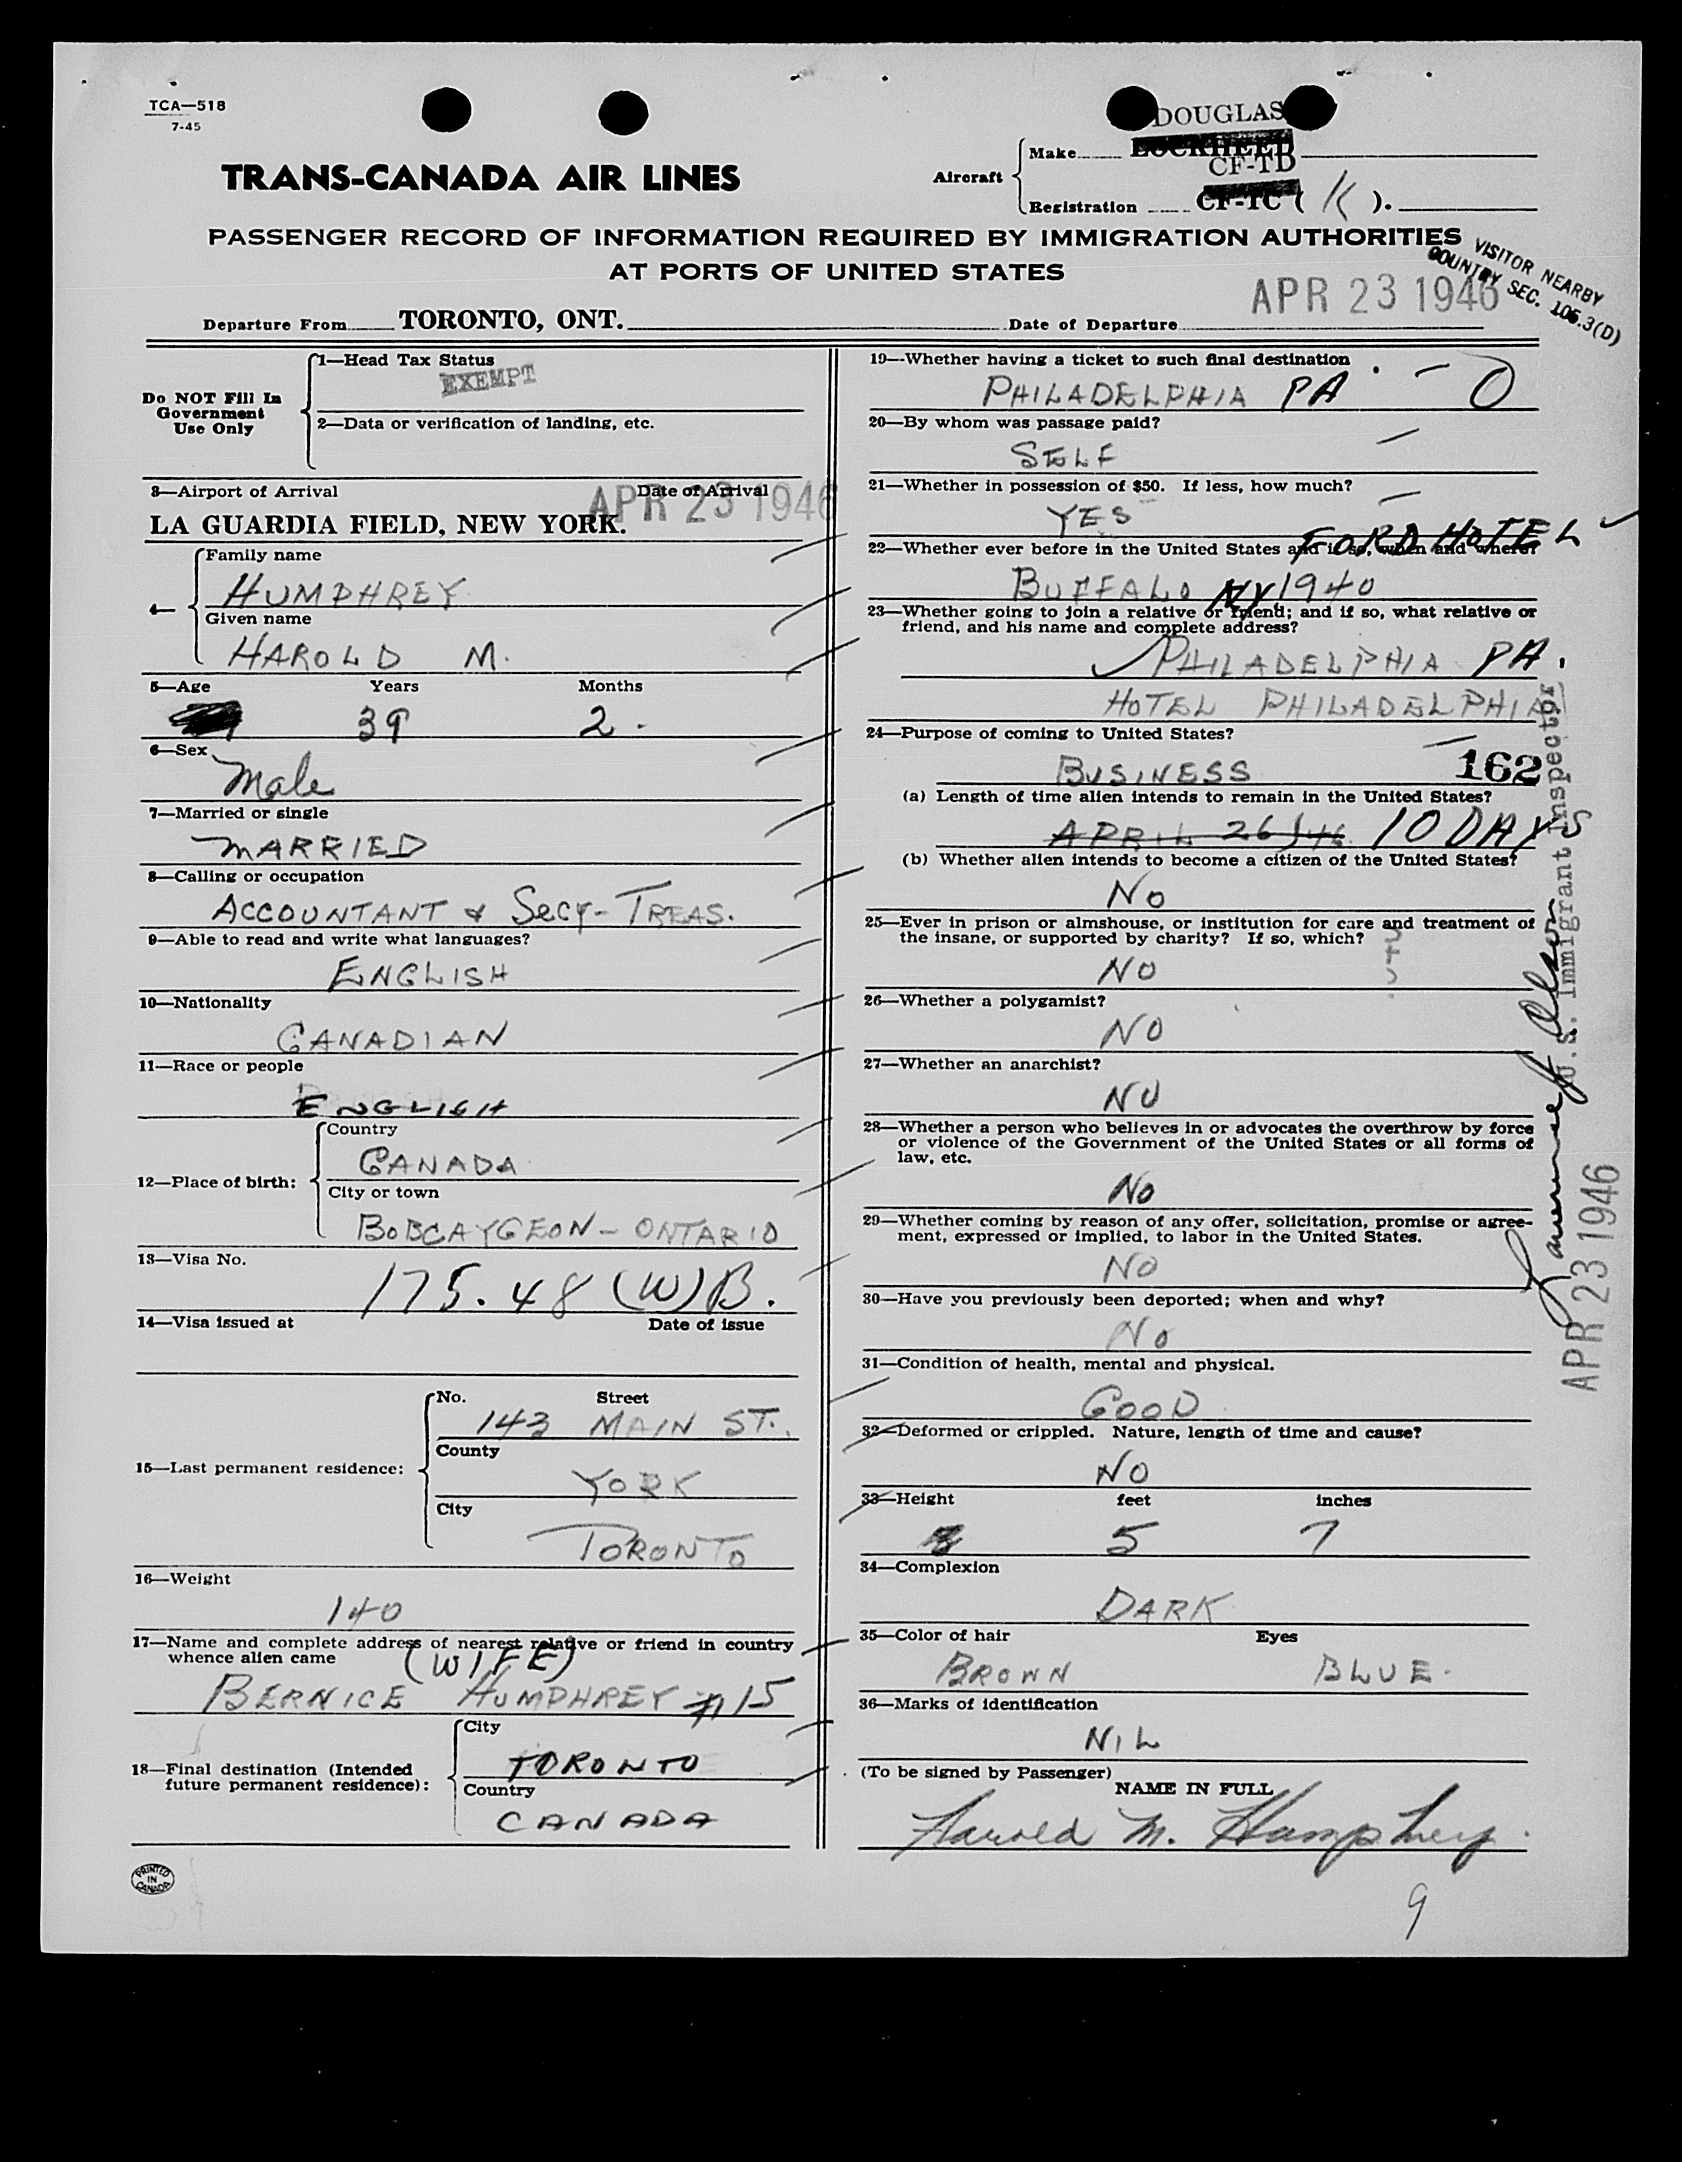 TCA—518
7-45
TRANS-CANADA AIR LINES
DOUGLAS
Aircraft
Make
LOCKHEED
CF-TD
Registration
CF-TC ( K ).
PASSENGER RECORD OF INFORMATION REQUIRED BY IMMIGRATION AUTHORITIES
AT PORTS OF UNITED STATES
VISITOR NEARBY
COUNTRY SEC. 105.3(D)
Departure From TORONTO, ONT.
Date of Departure APR 23 1946
Do NOT Fill In
Government
Use Only
1—Head Tax Status
EXEMPT
2—Data or verification of landing, etc.
3—Airport of Arrival Date of Arrival
LA GUARDIA FIELD, NEW YORK. APR 23 1946
4— Family name
HUMPHREY
Given name
HAROLD M.
5—Age Years Months
39 2.
6—Sex
Male
7—Married or single
MARRIED
8—Calling or occupation
ACCOUNTANT & SECY-TREAS.
9—Able to read and write what languages?
ENGLISH
10—Nationality
CANADIAN
11—Race or people
ENGLISH
12—Place of birth:
Country
CANADA
City or town
BOBCAYGEON - ONTARIO
13—Visa No.
175.48 (W)B.
14—Visa issued at Date of issue
15—Last permanent residence:
No. Street
143 MAIN ST.
County
YORK
City
TORONTO
16—Weight
140
17—Name and complete address of nearest relative or friend in country
whence alien came
(WIFE)
BERNICE HUMPHREY #15
18—Final destination (Intended
future permanent residence):
City
TORONTO
Country
CANADA
PRINTED
IN
CANADA
19—Whether having a ticket to such final destination
PHILADELPHIA PA. - O
20—By whom was passage paid?
SELF
21—Whether in possession of $50. If less, how much?
YES
22—Whether ever before in the United States and if so, when and where?
FORD HOTEL
BUFFALO NY 1940
23—Whether going to join a relative or friend; and if so, what relative or
friend, and his name and complete address?
PHILADELPHIA PA.
HOTEL PHILADELPHIA
24—Purpose of coming to United States?
BUSINESS 162
(a) Length of time alien intends to remain in the United States?
APRIL 26/46 10 DAYS
(b) Whether alien intends to become a citizen of the United States?
NO
25—Ever in prison or almshouse, or institution for care and treatment of
the insane, or supported by charity? If so, which?
NO
26—Whether a polygamist?
NO
27—Whether an anarchist?
NO
28—Whether a person who believes in or advocates the overthrow by force
or violence of the Government of the United States or all forms of
law, etc.
NO
29—Whether coming by reason of any offer, solicitation, promise or agree-
ment, expressed or implied, to labor in the United States.
NO
30—Have you previously been deported; when and why?
NO
31—Condition of health, mental and physical.
GOOD
32—Deformed or crippled. Nature, length of time and cause?
NO
33—Height feet inches
5 7
34—Complexion
DARK
35—Color of hair Eyes
BROWN BLUE.
36—Marks of identification
NIL
(To be signed by Passenger)
NAME IN FULL
Harold M. Humphrey.
9
U.S. Immigrant Inspector
APR 23 1946